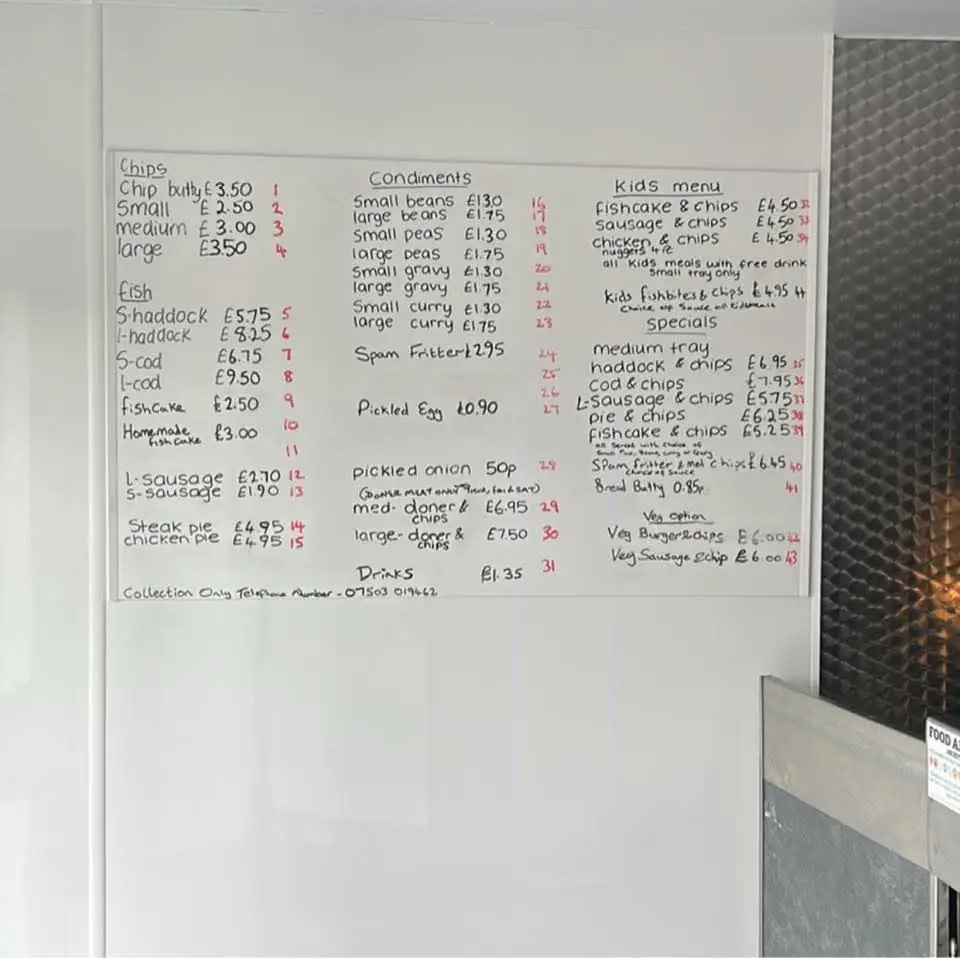 Chips
Chip butty £3.50 1
Small £2.50 2
medium £3.00 3
large £3.50 4
fish
S-haddock £5.75 5
l-haddock £8.25 6
S-cod £6.75 7
l-cod £9.50 8
fishcake £2.50 9
Homemade fishcake £3.00 10
11
L-sausage £2.70 12
S-sausage £1.90 13
Steak pie £4.95 14
chicken pie £4.95 15
Condiments
Small beans £1.30 16
large beans £1.75 17
Small peas £1.30 18
large peas £1.75 19
Small gravy £1.30 20
large gravy £1.75 21
Small curry £1.30 22
large curry £1.75 23
Spam Fritter £2.95 24
25
26
Pickled Egg £0.90 27
pickled onion 50p 28
(Doner meat only Thurs, fri & sat)
med- doner & chips £6.95 29
large- doner & chips £7.50 30
Drinks £1.35 31
Kids menu
fishcake & chips £4.50 32
sausage & chips £4.50 33
chicken & chips £4.50 34
nuggets
all kids meals with free drink
small tray only
Kids fishbites & chips £4.95 44
choice of sauce all kidsmeals
Specials
medium tray
haddock & chips £6.95 35
cod & chips £7.95 36
L-Sausage & chips £5.75 37
pie & chips £6.25 38
fishcake & chips £5.25 39
all served with choice of
Small Peas, Beans, Curry or Gravy
Spam fritter & med chips £6.45 40
choice of sauce
Bread Butty 0.85p 41
Veg option
Veg Burger & chips £6.00 42
Veg Sausage & chip £6.00 43
Collection Only Telephone Number - 07503 019462
FOOD A